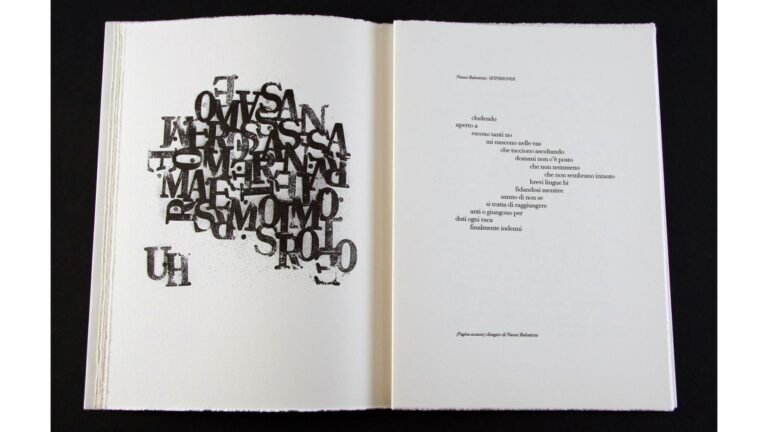 UH
Nanni Balestrini | SFINIMONDI
cludendo
aperto a
escono tanti no
mi nascono nelle vas
che tacciono ascoltando
domani non c'è posto
che non nemmeno
che non sembrano intanto
brevi lingue bi
fidandosi mentire
sanno di non se
si tratta di raggiungere
anti o giungono per
duti ogni raca
finalmente indenni
(Pagina accanto) disegno di Nanni Balestrini